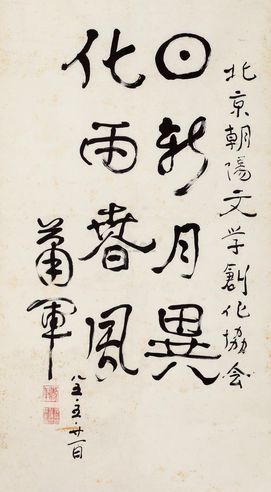 北京朝陽文学創作協会
日新月異
化雨春風
蕭軍
八五·五·廿一日